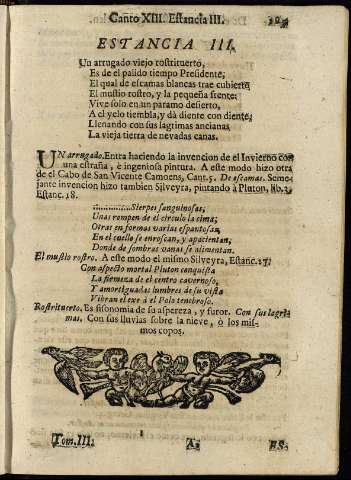 Canto XIII. Estancia III.
ESTANCIA III.
Un arrugado viejo rostrituerto,
Es de el palido tiempo Presidente;
El qual de escamas blancas trae cubierto
El mustio rostro, y la pequeña frente;
Vive solo en un paramo desierto,
A el yelo tiembla, y dà diente con diente;
Llenando con sus lagrimas ancianas
La vieja tierra de nevadas canas.
UN arrugado. Entra haciendo la invencion de el Invierno con
una estraña, è ingeniosa pintura. A este modo hizo otra
de el Cabo de San Vicente Camoens, Cant. 5. De escamas. Seme-
jante invencion hizo tambien Silveyra, pintando à Pluton, lib. 2.
Estanc. 18.
Sierpes sanguinosas,
Unas rompen de el circulo la cima;
Otras en formas varias espantosas,
En el cuello se enroscan, y apacientan,
Donde de sombras vanas se alimentan.
El mustio rostro. A este modo el mismo Silveyra, Estanc. 17.
Con aspecto mortal Pluton conquista
La firmeza de el centro cavernoso,
Y amortiguadas lumbres de su vista
Vibran el exe à el Polo tenebroso.
Rostrituerto. Es fisonomia de su aspereza, y furor. Con sus lagri-
mas. Con sus lluvias sobre la nieve, ò los mis-
mos copos.
Tom. III. A3 ES-